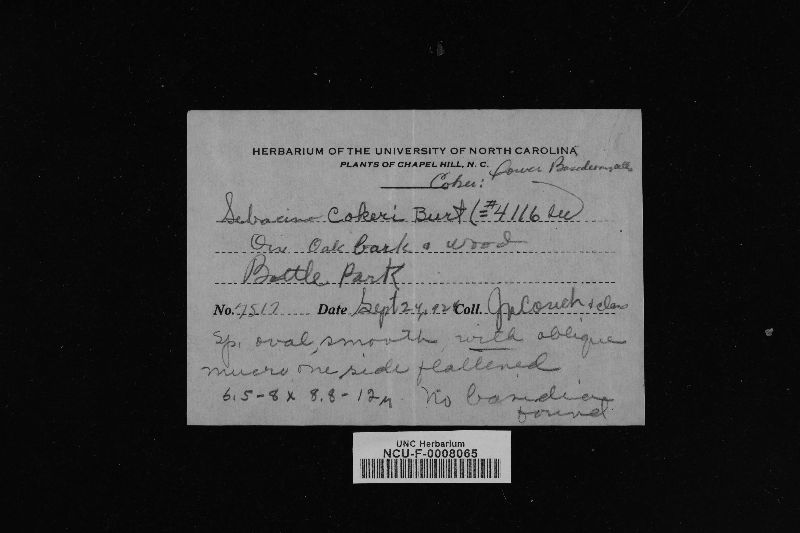 HERBARIUM OF THE UNIVERSITY OF NORTH CAROLINA
PLANTS OF CHAPEL HILL, N. C.
Coker: Lower Basidiomycetes
Sebacina Cokeri Burt (=#4116 bu)
On Oak bark & wood
Battle Park
No. 7517 Date Sept 24, 1924 Coll. JN Couch & class
Sp. oval, smooth with oblique
mucro one side flattened
6.5-8 x 8.8-12µ. No basidia
found
UNC Herbarium
NCU-F-0008065